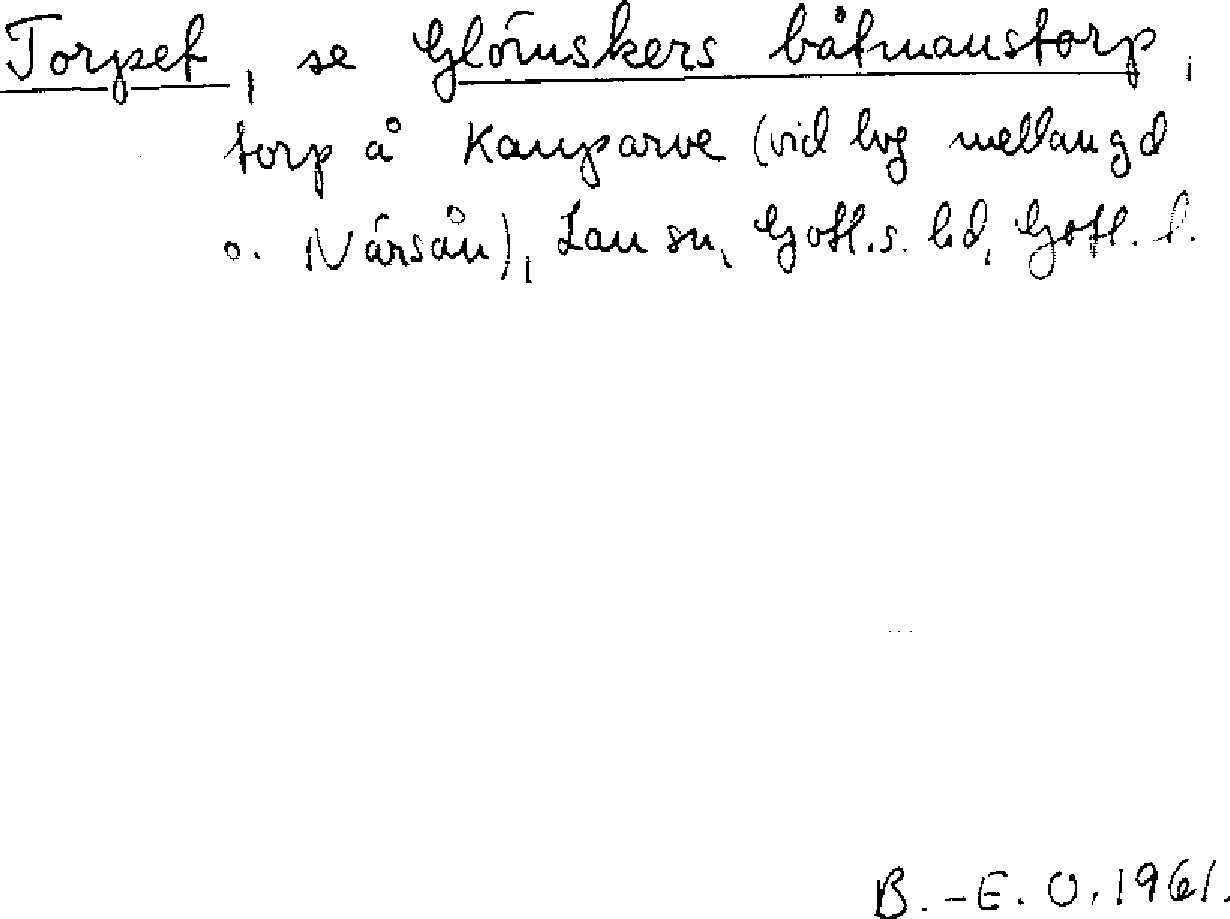 Torpet, se Glömskers båtmanstorp,
torp å Kauparve (vid lvg mellan gd
o. Närsån), Lau sn, Gotl.s. hd, Gotl. l.
B.-E. O. 1961.